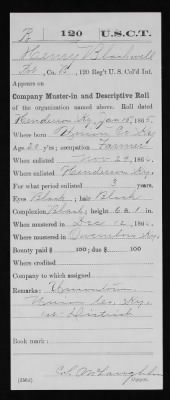 B | 120 | U.S.C.T.
Henry Blackwell
Pvt., Co. B, 120 Reg't U. S. Col'd Inf.
Appears on
Company Muster-in and Descriptive Roll
of the organization named above. Roll dated
Henderson Ky, Jan 18, 1865.
Where born Union Co. Ky
Age 20 y'rs; occupation Farmer
When enlisted Nov 29, 1864.
Where enlisted Henderson Ky.
For what period enlisted 3 years.
Eyes Black; hair Black
Complexion Black; height 6 ft. in.
When mustered in Dec 12, 1864.
Where mustered in Owensboro Ky.
Bounty paid $ 100; due $ 100
Company to which assigned
Remarks: Uniontown
Union Co, Ky.
District
Book mark:
(356d)
Copyist.